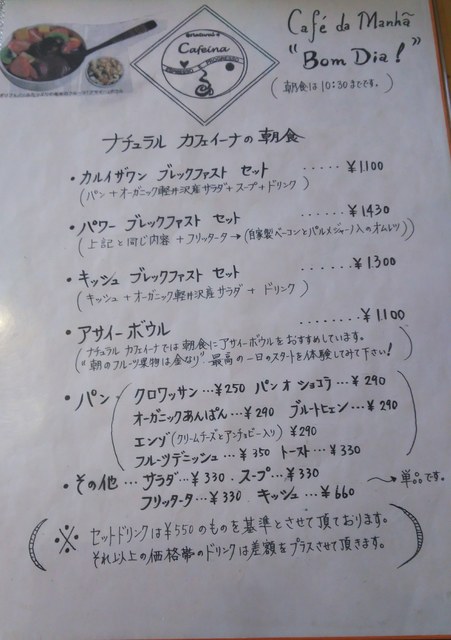 Natural
Cafeina
ESPRESSO
Café da Manhã
"Bom Dia!"
(朝食は10:30までです。)
ナチュラル カフェイーナの朝食
・カルイザワン ブレックファスト セット ····· ¥1100
(パン+オーガニック軽井沢産サラダ+スープ+ドリンク)
・パワー ブレックファスト セット ······ ¥1430
(上記と同じ内容 + フリッタータ→(自家製ベーコンとパルメジャーノ入のオムレツ)
・キッシュ ブレックファスト セット ······ ¥1300
(キッシュ+オーガニック軽井沢産サラダ + ドリンク)
・アサイー ボウル ······· ¥1100
(ナチュラル カフェイーナでは朝食にアサイーボウルをおすすめしています。
"朝のフルーツ果物は金なり" 最高の一日のスタートを体験してみて下さい!)
・パン・(クロワッサン…¥250 パン オ ショコラ…¥290
オーガニックあんぱん…¥290 ブルートヒェン…¥290
エンゾ(クリームチーズとアンチョビー入り) ¥290
フルーツデニッシュ…¥350 トースト…¥330)
・その他…サラダ…¥330、スープ…¥330
フリッタータ…¥330、キッシュ…¥660 →単品です。
(※ セットドリンクは¥550のものを基準とさせて頂ております。
それ以上の価格帯のドリンクは差額をプラスさせて頂きます。)